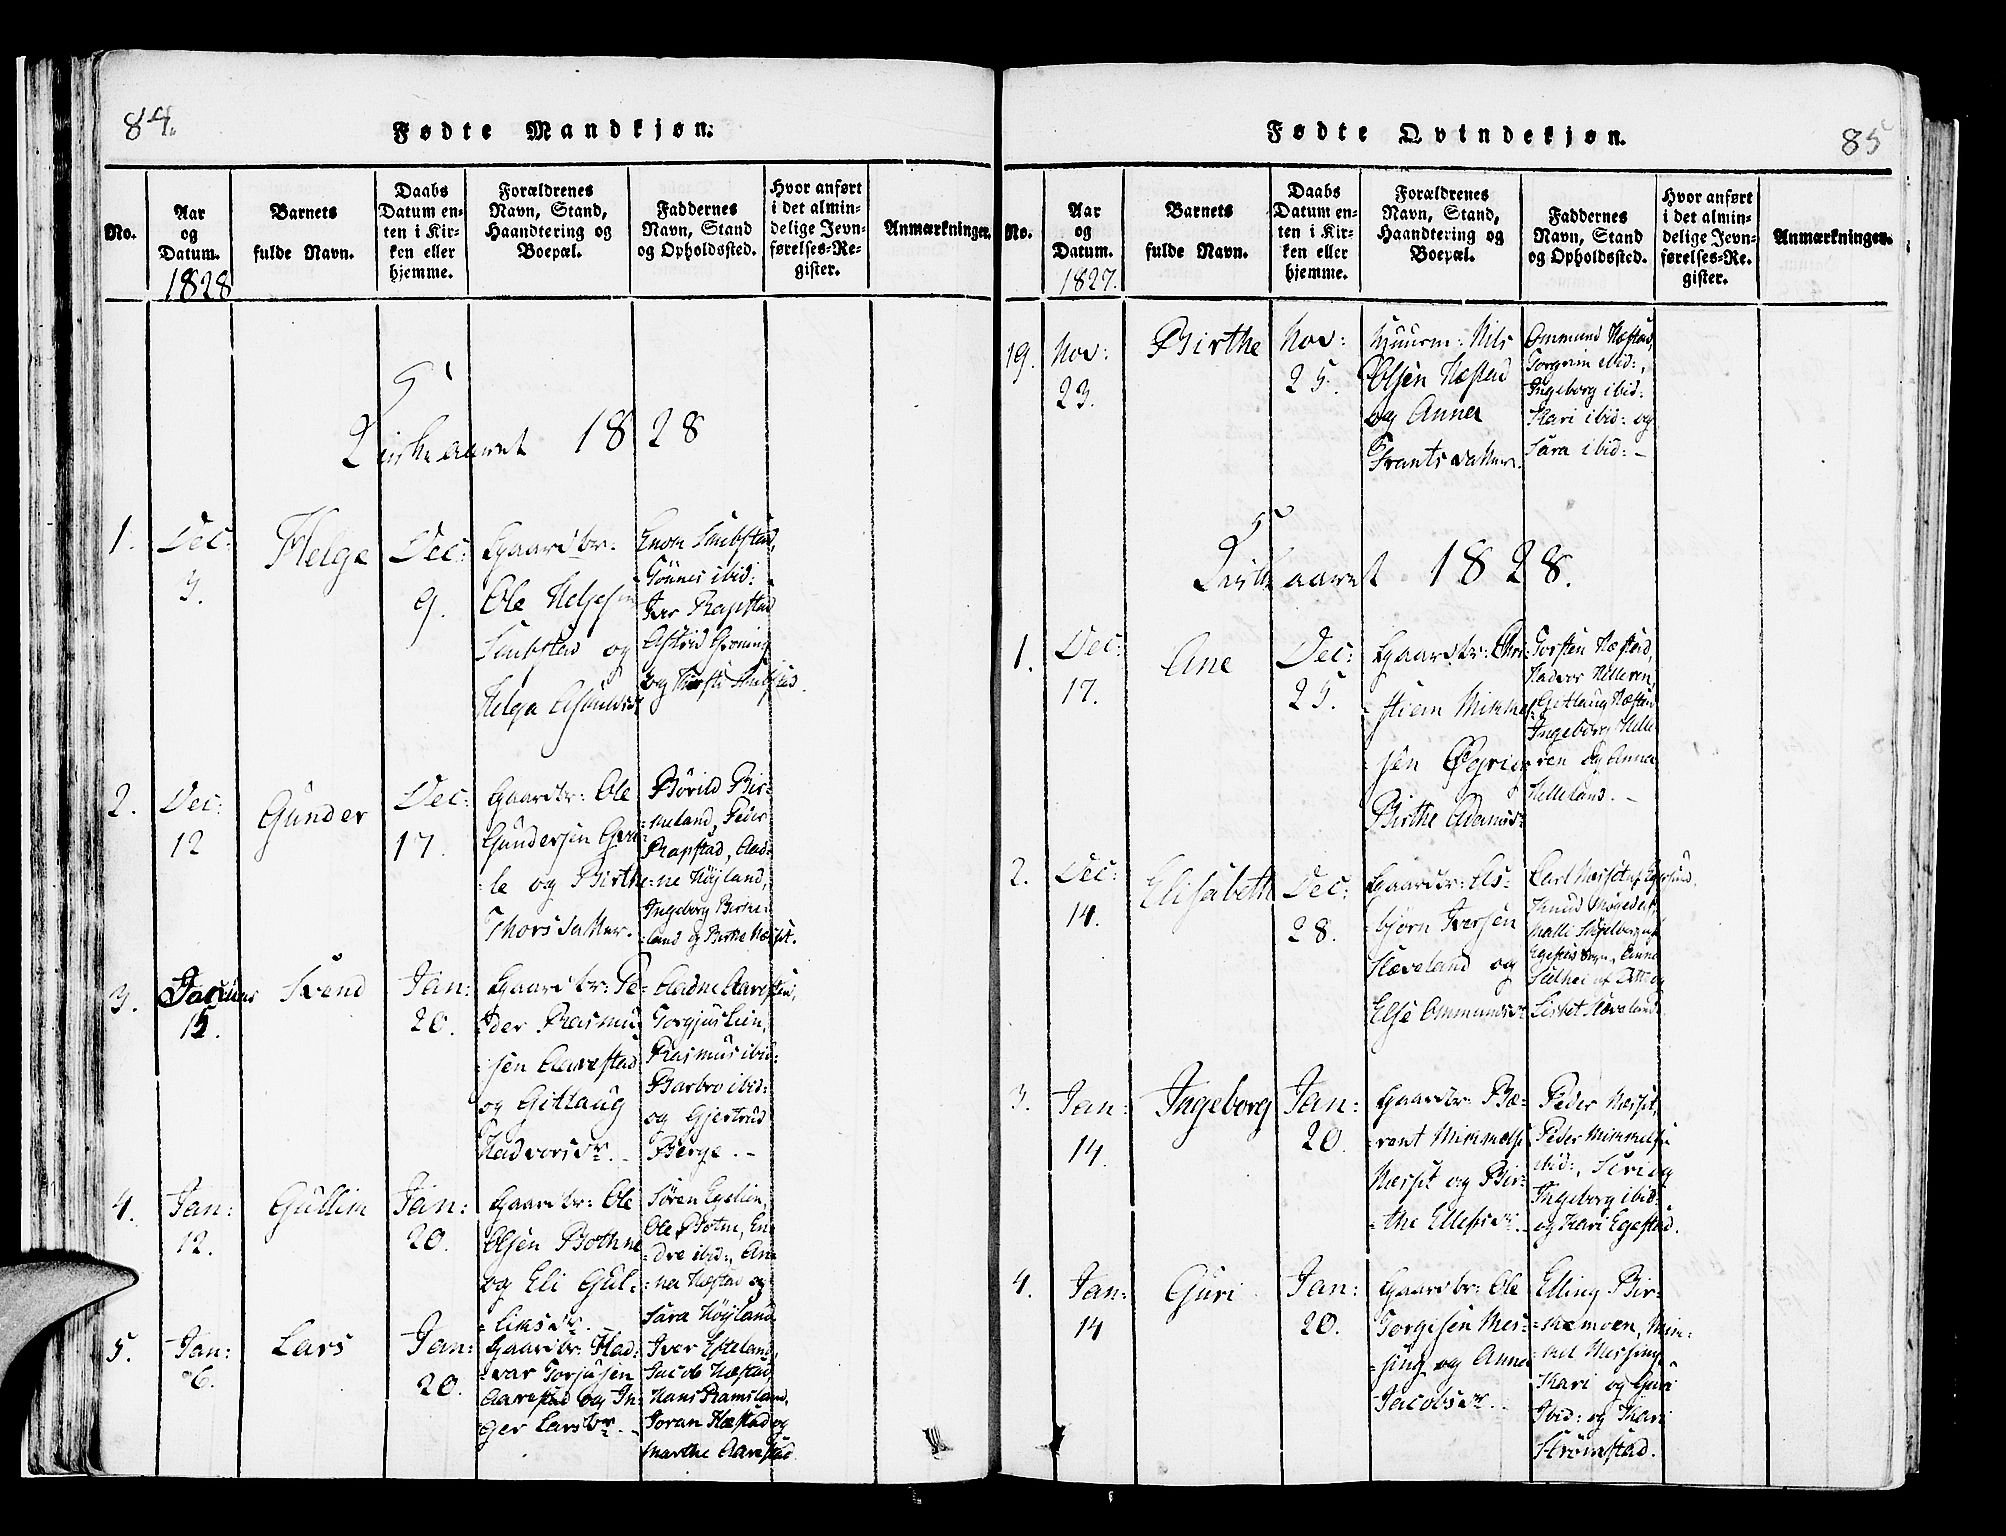 84.
Fødte Mandkjøn.
No.
Aar
og
Datum.
1828
Barnets
fulde Navn.
Daabs
Datum en-
ten i Kir-
ken eller
hjemme.
Forældrenes
Navn, Stand,
Haandtering og
Boepæl.
Faddernes
Navn, Stand
og Opholdssted.
Hvor anført
i det almin-
delige Jevn-
førelses-Re-
gister.
Anmærkninger.
Kirkeaaret 1828
1.
Dec:
3.
Helge
Dec:
9.
Gaardbr:
Ole Helgesen
og
Helga
Tönnes ibid:
Iver Rapstad
Astrid
og
2.
Dec:
12
Gunder
Dec:
17.
Gaardbr: Ole
Gundersen Gya-
-le og Birthe
Thorsdatter.
Börild Bir-
-keland, Peder
Rapstad, Aad-
-ne Höjland,
Ingeborg Birke-
-land og Birthe Næset.
3.
Januar
15.
Svend
Jan:
20.
Gaardbr: Pe-
-der Rasmu-
-sen Aarestad
og Gitlaug
Hadvorsdr. -
Aadne Aarestad,
Torgjus Lien,
Rasmus ibid:
Barbro ibid:
og Gjertrud
Berge. -
4.
Jan:
12.
Gullim
Jan:
20.
Gaardbr: Ole
Olsen Bothne
og Eli Gul-
-liksdr. -
Sören Egelien,
Ole Botne, En-
-dre ibid:, An-
-na Hæstad og
Sara Höyland
5.
Jan:
6.
Lars
Jan:
20.
Gaardbr: Had-
-var Torjusen
Aarestad og In-
-ger Larsdr. -
Iver Esteland,
Jacob Hæstad,
Hans Ramsland,
Joran Hæstad og
Marthe Aarestad
Fødte Qvindekjøn.
85
No.
Aar
og
Datum.
1827.
Barnets
fulde Navn.
Daabs
Datum en-
ten i Kir-
ken eller
hjemme.
Forældrenes
Navn, Stand,
Haandtering og
Boepæl.
Faddernes
Navn, Stand
og Opholdssted.
Hvor anført
i det almin-
delige Jevn-
førelses-Re-
gister.
Anmærkninger.
19.
Nov:
23.
Birthe
Nov:
25.
Huusm: Nils
Olsen Hæstad
og Anna
Frantsdatter.
Ommund Hæstad,
Torgrim ibid:,
Ingeborg ibid:
Kari ibid: og
Sara ibid: -
Kirkeaaret 1828.
1.
Dec:
17.
Ane
Dec:
25.
Gaardbr: Chri-
-stien Mikkel-
-sen Øgrei og
Birthe Adamsdr
Torsten Hæstad,
Helleren,
Gitlaug Hæstad
Ingeborg Helle-
ren og Anna
Helleland. -
2.
Dec:
14.
Elisabeth
Dec:
28.
Gaardbr: As-
-björn Iversen
Stæveland og
Else Ommundsdr
Carl
Knud
og
Lisbet Stæveland
3.
Jan:
14.
Ingeborg
Jan:
20.
Gaardbr: Bæ-
-rent Mikkelsen
Næset og Bir-
-the Ellefsdr. -
Peder Næset,
Peder Mikkelsen
ibid:, Siri og
Ingeborg ibid:
og Kari Egestad.
4.
Jan:
14
Guri
Jan:
20.
Gaardbr: Ole
Torgisen Mes-
-sing og Anna
Jacobsdr. -
Elling Bir-
-kemoen, Mik-
-kel Messing,
Kari og Guri
ibid: og Kari
Strömstad.